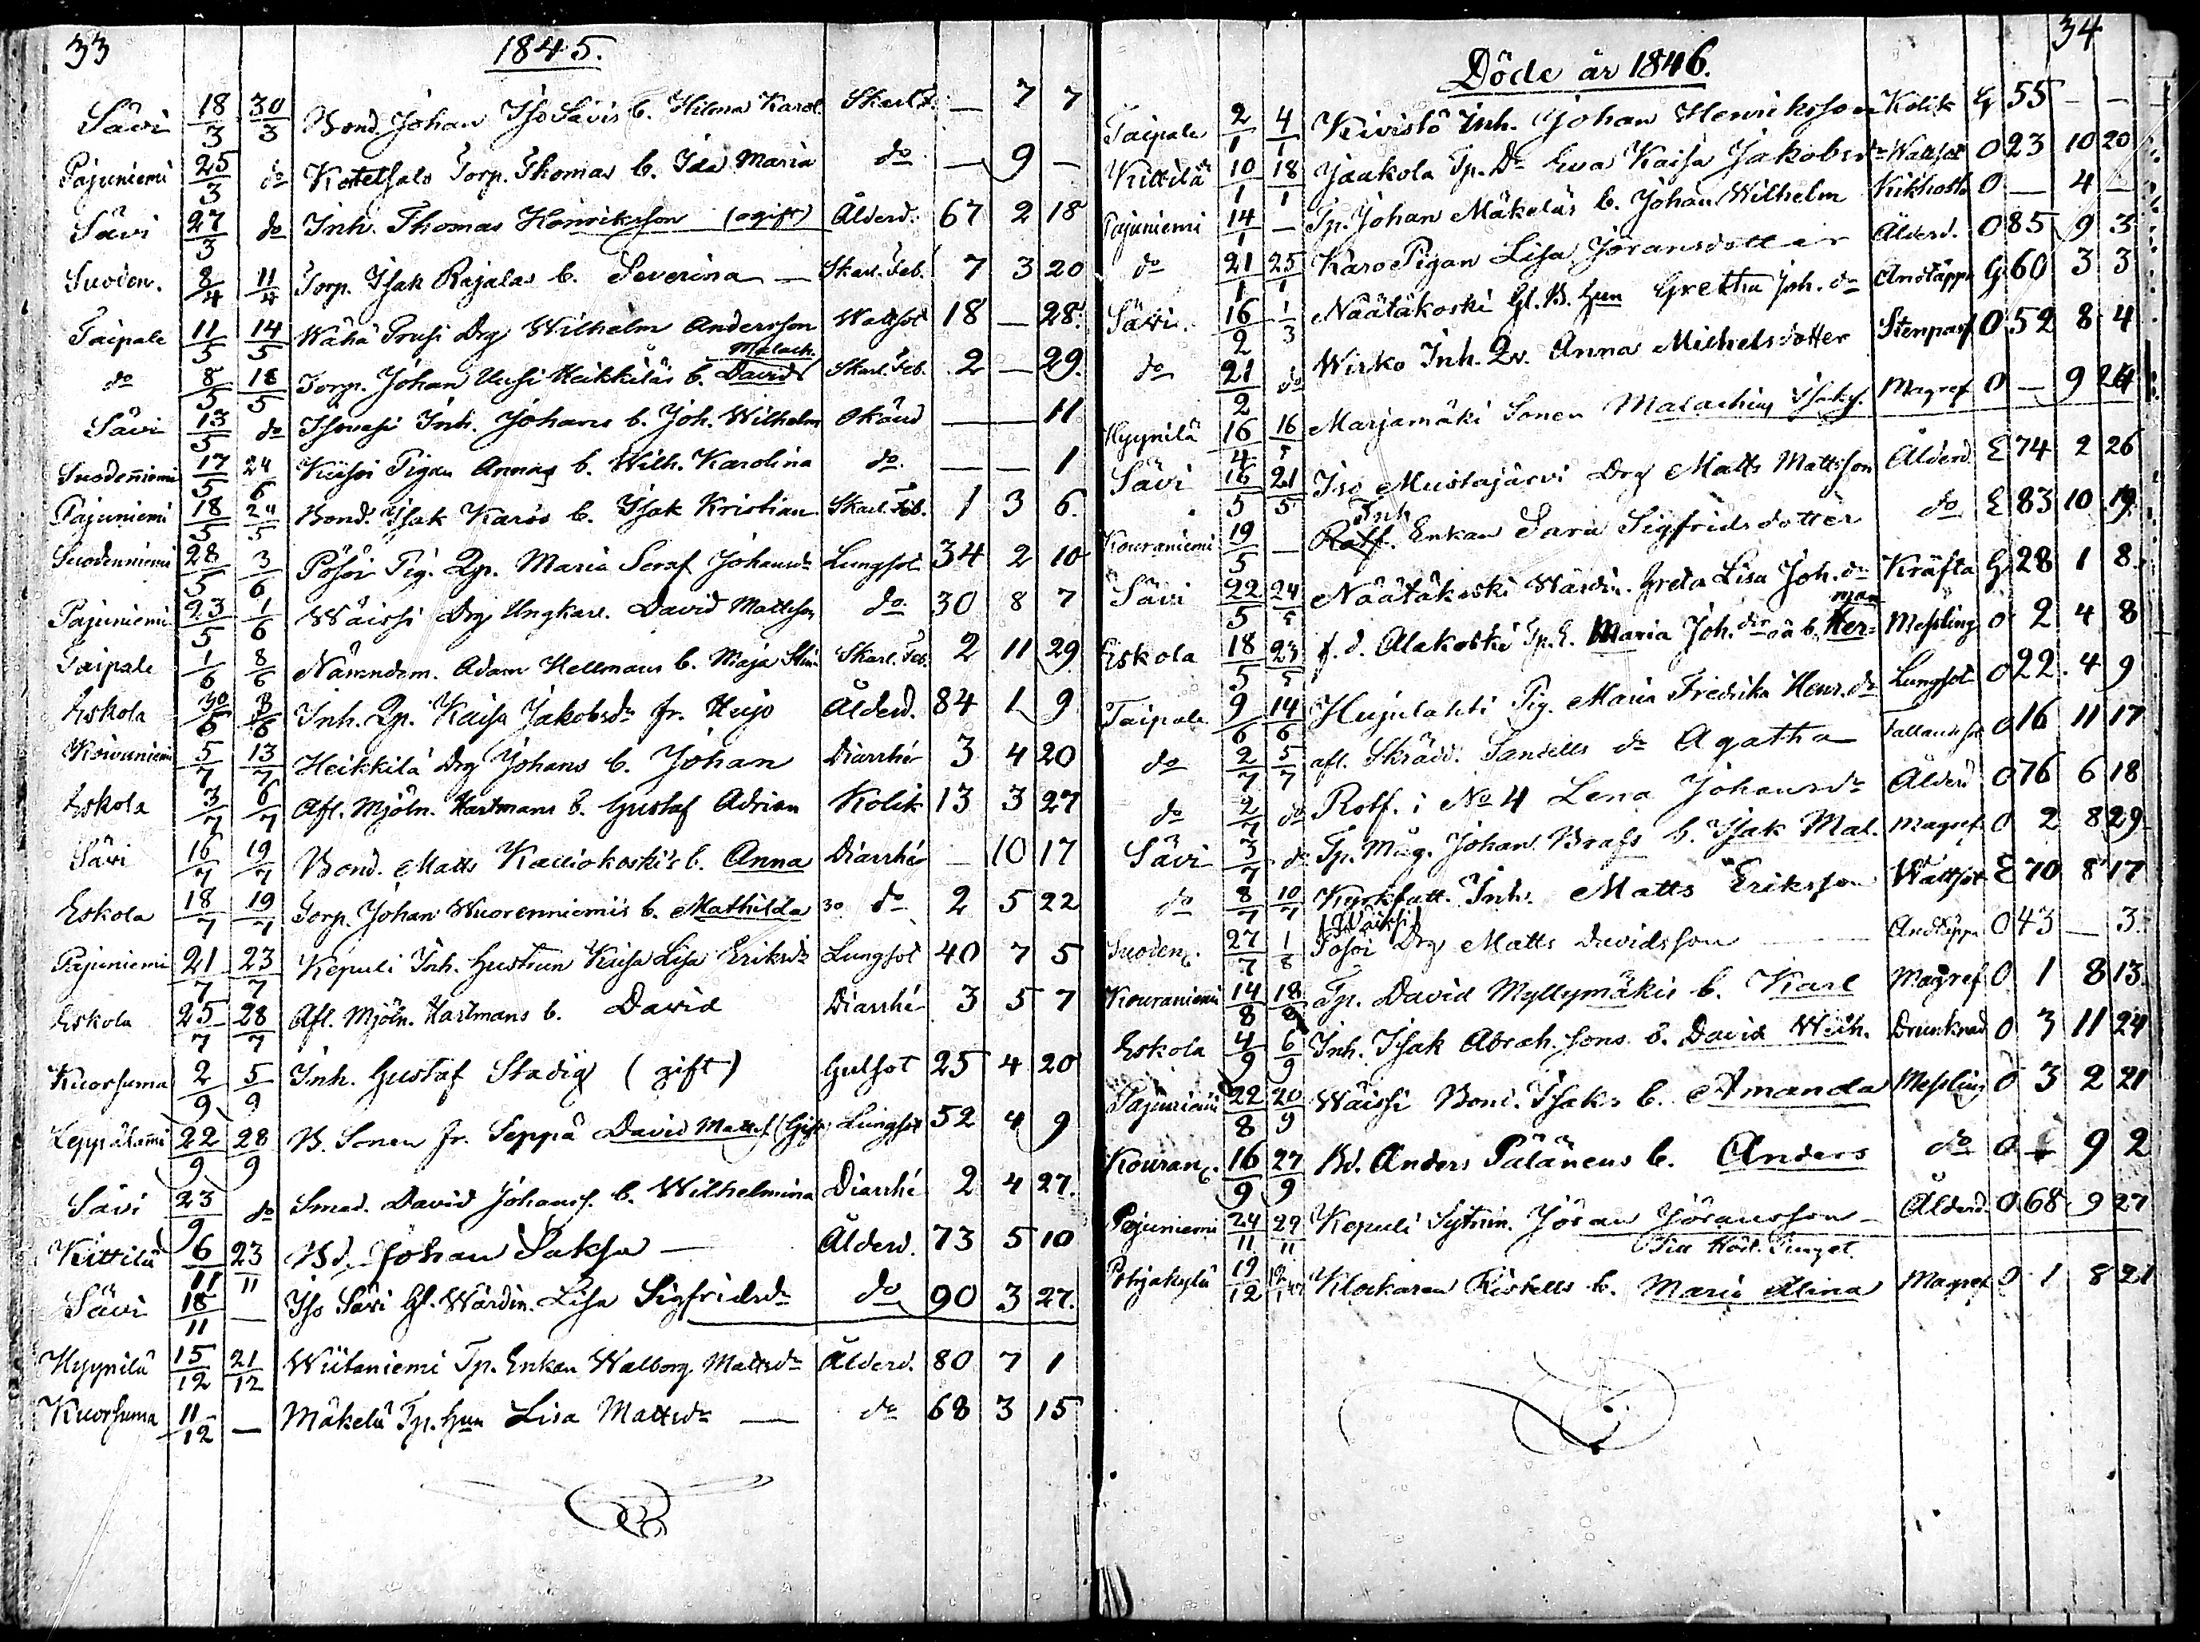 33
1845.
Säwi 18/3 30/3 Bond. Johan Iso Säwis b. Hilma Karol. Skarl.f. — 7 7
Pajuniemi 25/3 do Kostetsalo Torp. Thomas b. Ida Maria do — 9 —
Säwi 27/3 do Inh. Thomas Henriksson (ogift) Ålderd. 67 2 18
Suoden. 8/4 11/4 Torp. Isak Rajalas b. Severina — Skarl. Feb. 7 3 20
Taipale 11/5 14/5 Wähä Prusi Drg Wilhelm Andersson Wattsot 18 — 28.
do 8/5 18/5 Torp. Johan Uusi Heikkiläs b. David Malach. Skarl. Feb. 2 — 29.
Säwi 13/5 do Inh. Johans b. Joh. Wilhelm Okänd — — 11
Suodenniemi 17/5 24/6 Pigan Annas b. Wilh. Karolina do — — 1
Pajuniemi 18/5 24/5 Bond. Isak Karos b. Isak Kristian Skarl. Feb. 1 3 6.
Suodenniemi 28/5 3/6 Pösöi Pig. Qp. Maria Seraf Johansdr Lungsot 34 2 10
Pajuniemi 23/5 1/6 Wäissi Drg Ungkarl. David Mattsson do 30 8 7
Taipale 1/6 8/6 Nämndem. Adam Hellmans b. Maja Stin. Skarl. Feb. 2 11 29
Eskola 30/5 8/6 Inh. Qp. Kaisa Jakobsdr fr. Hujo Ålderd. 84 1 9
Kouraniemi 5/7 13/7 Heikkilä Drg Johans b. Johan Diarrhé 3 4 20
Eskola 3/7 6/7 Afl. Mjöln. Hartmans b. Gustaf Adrian Kolik 13 3 27
Säwi 16/7 19/7 Bond. Matts Kalliokoskis b. Anna Diarrhé — 10 17
Eskola 18/7 19/7 Torp. Johan Wuorenniemis b. Mathilda do 2 5 22
Pajuniemi 21/7 23/7 Kepuli Inh. Hustrun Kaisa Lisa Eriksdr Lungsot 40 7 5
Eskola 25/7 28/7 Afl. Mjöln. Hartmans b. David Diarrhé 3 5 7
Kuorsuma 2/9 5/9 Inh. Gustaf Stadig (gift) Gulsot 25 4 20
Leppälammi 22/9 28/9 B. Sonen fr. Seppä David Matts. (Gift) Lungsot 52 4 9
Säwi 23/9 do Smed. David Johanss. b. Wilhelmina Diarrhé 2 4 27.
Kittilä 6/11 23/11 Bd. Johan Paksu — Ålderd. 73 5 10
Säwi 18/11 — Iso Säwi Gl. Wärdin. Lisa Sigfridsdr do 90 3 27.
Hyynilä 15/12 21/12 Wiitaniemi Tp. Enkan Walborg Mattsdr Ålderd. 80 7 1
Kuorsuma 11/12 — Mäkelä Tp. Hun Lisa Mattsdr — do 68 3 15
34
Döde år 1846.
Taipale 2/1 4/1 Kivistö Inh. Johan Henriksson Kolik G 55 — —
Kittilä 10/1 18/1 Jaakola Tp. Dr Eva Kaisa Jakobsdr Wattsot O 23 10 20
Pajuniemi 14/1 — Tp. Johan Mäkeläs b. Johan Wilhelm Kikhosta O — 4 —
do 21/1 25/1 Karo Pigan Lisa Joransdotter Ålderd. O 85 9 3
Säwi. 16/2 1/3 Näätäkoski Gl. B. Hun Gretha Joh. dr Andtäppa G 60 3 3
do 21/2 do Wisko Inh. Qv. Anna Michelsdotter Stenpass O 52 8 4
Hyynilä 16/4 16/5 Marjamäki Sonen Malachias Isaks. Magref O — 9 24
Säwi 16/5 21/5 Iso Mustajärvi Drg Matts Mattsson Ålderd. E 74 2 26
Kouraniemi 19/5 — Inh Rotf. Enkan Sara Sigfridsdotter do E 83 10 19.
Säwi 22/5 24/5 Näätäkoski Wärdin. Greta Lisa Joh. dr Kräfta G 28 1 8
Eskola 18/5 23/5 f. d. Alakoski Tp. E. Maria Joh. dr oä b. Herman Messling O 2 4 8
Taipale 9/6 14/6 Hujulahti Pig. Maria Fredrika Henr. dr Lungsot O 22. 4 9
do 2/7 5/7 afl. Skrädd. Sandells dr Agatha Fallandsot O 16 11 17
do 2/7 do Rotf. i No 4 Lena Johansdr Ålderd O 76 6 18
Säwi 3/7 do Tp. Måg. Johan Brass b. Isak Mal. Magref. O 2 8 29
do 8/7 10/7 Kyrkfatt. Inh. Matts Eriksson Wattsot E 70 8 17
Suoden. 27/7 1/8 (Wäissi) Pösöi Drg Matts Davidsson — Andtäppa O 43 — 3.
Kouraniemi 14/8 18/8 Tp. David Myllymäkis b. Karl Magref O 1 8 13.
Eskola 4/9 6/9 Inh. Isak Abrah. sons b. David Wilh. Drunknad O 3 11 24
Pajuniemi 22/8 20/9 Wäissi Bond. Isaks b. Amanda Messling O 3 2 21
Kouran. 16/9 27/9 Bd. Anders Päläneus b. Anders do O 1 9 2
Pajuniemi 24/11 29/11 Kepuli Sytnin. Jöran Jöransson — Ålderd. O 68 9 27
Till Höst. Tinget.
Pohjakylä 19/12 Klockaren Ristells b. Maria Alina Magref O 1 8 21